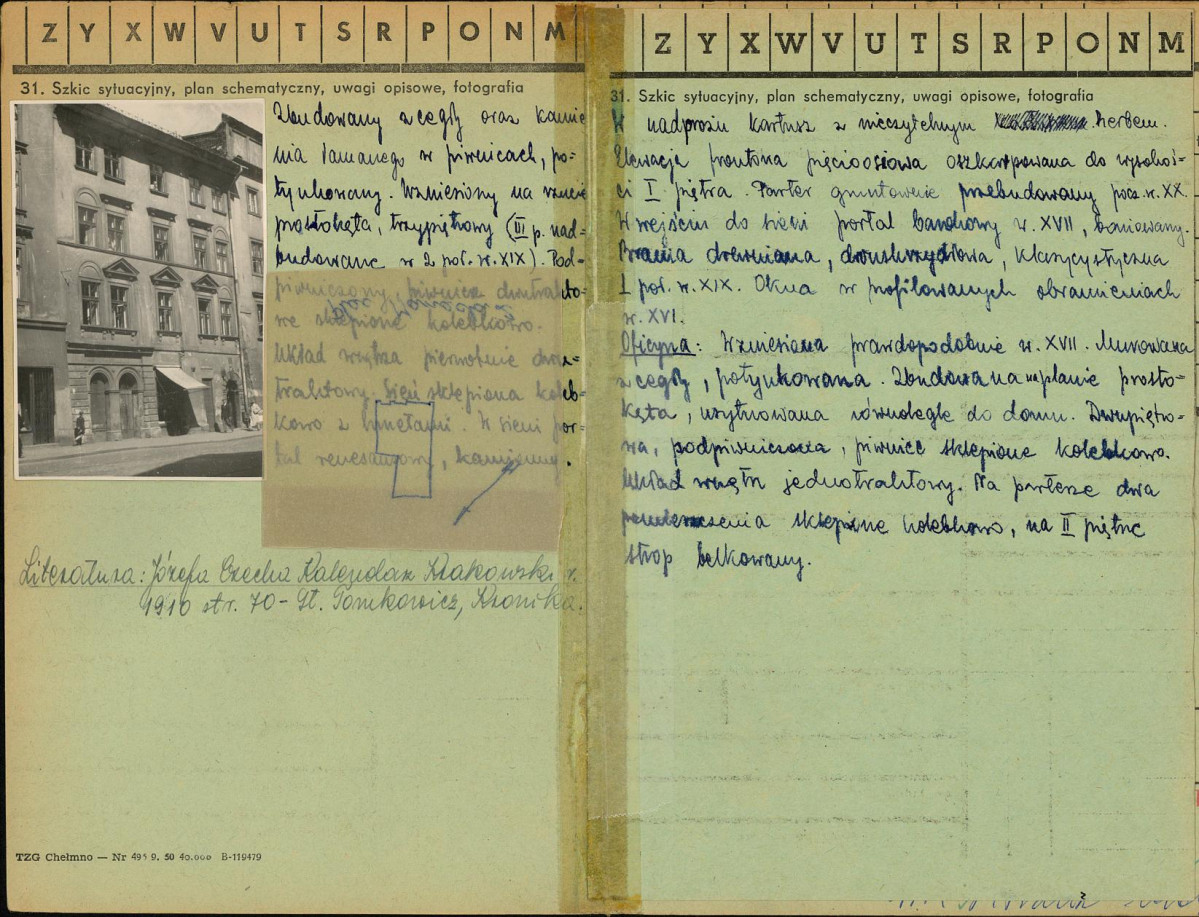 Z Y X W V U T S R P O N M
31. Szkic sytuacyjny, plan schematyczny, uwagi opisowe, fotografia
Zbudowany z cegły oraz kamie
nia łamanego w piwnicach, po-
tynkowany. Wzniesiony na rzucie
prostokąta, trzypiętrowy (III p. nad-
budowane w 2 poł. w. XIX). Pod-
piwniczony, piwnice dwutrakto-
we sklepione kolebkowo.
Układ wnętrza pierwotnie dwu-
traktowy. Sień sklepiona koleb-
kowo z lunetami. W sieni por-
tal renesansowy, kamienny.
Literatura: Józefa Czecha Kalendarz Krakowski r.
1910 str. 70 - St. Tomkowicz, Kronika.
TZG Chełmno — Nr 495 9. 50 40.000 B-119479
Z Y X W V U T S R P O N M
31. Szkic sytuacyjny, plan schematyczny, uwagi opisowe, fotografia
W nadprożu kartusz z nieczytelnym herbem.
Elewacja frontona pięcioosiowa oszkarpowana do wysokoś-
ci I piętra. Parter gruntownie przebudowany pocz. w. XX.
W wejściu do sieni portal barokowy w. XVII, boniowany.
Brama drewniana, dwuskrzydłowa, klasycystyczna
1 poł. w. XIX. Okna w profilowanych obramieniach
w. XVI.
Oficyna: Wzniesiona prawdopodobnie w. XVII. Murowana
z cegły, potynkowana. Zbudowana na planie prosto-
kąta, usytuowana równolegle do domu. Dwupiętro-
wa, podpiwniczona, piwnice sklepione kolebkowo.
Układ wnętrz jednotraktowy. Na parterze dwa
pomieszczenia sklepione kolebkowo, na II piętrze
strop belkowany.